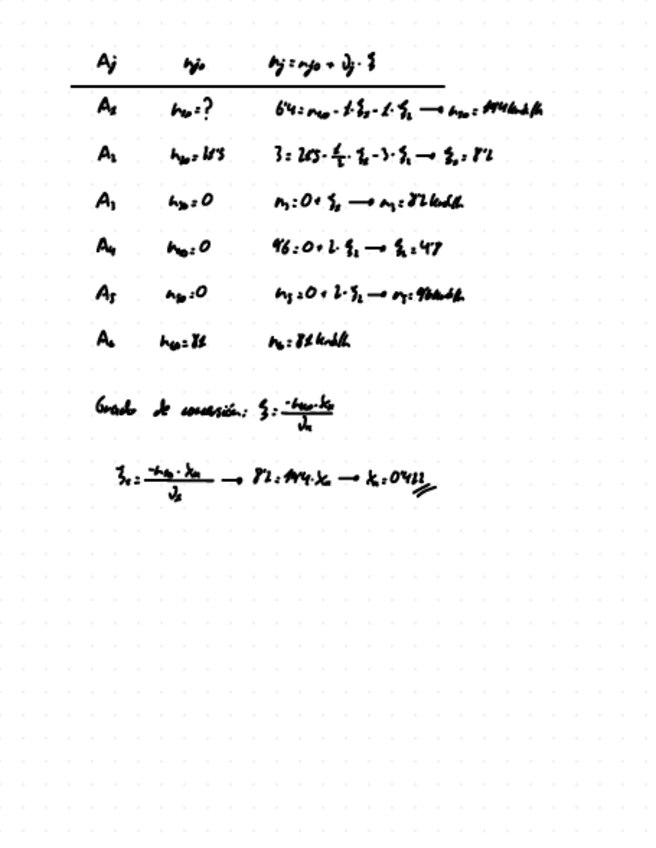 Aj nj₀ nj = nj₀ + νj · ξ
A₁ n₁₀ = ? 64 = n₁₀ - 1·ξ₁ - 1·ξ₂ → n₁₀ = 194 kmol/h
A₂ n₂₀ = 3 = - 1/2 · ξ₁ - 3·ξ₂ → ξ₁ = 82
A₃ n₃₀ = 0 n₃ = 0 + ξ₁ → n₃ = 82 kmol/h
A₄ n₄₀ = 0 96 = 0 + 2·ξ₂ → ξ₂ = 48
A₅ n₅₀ = 0 n₅ = 0 + 2·ξ₂ → n₅ = 96 kmol/h
A₆ n₆₀ = n₆ = kmol/h
Grado de conversión: ξ =
ξ₁ = → 82 = 194 · → = 0'422